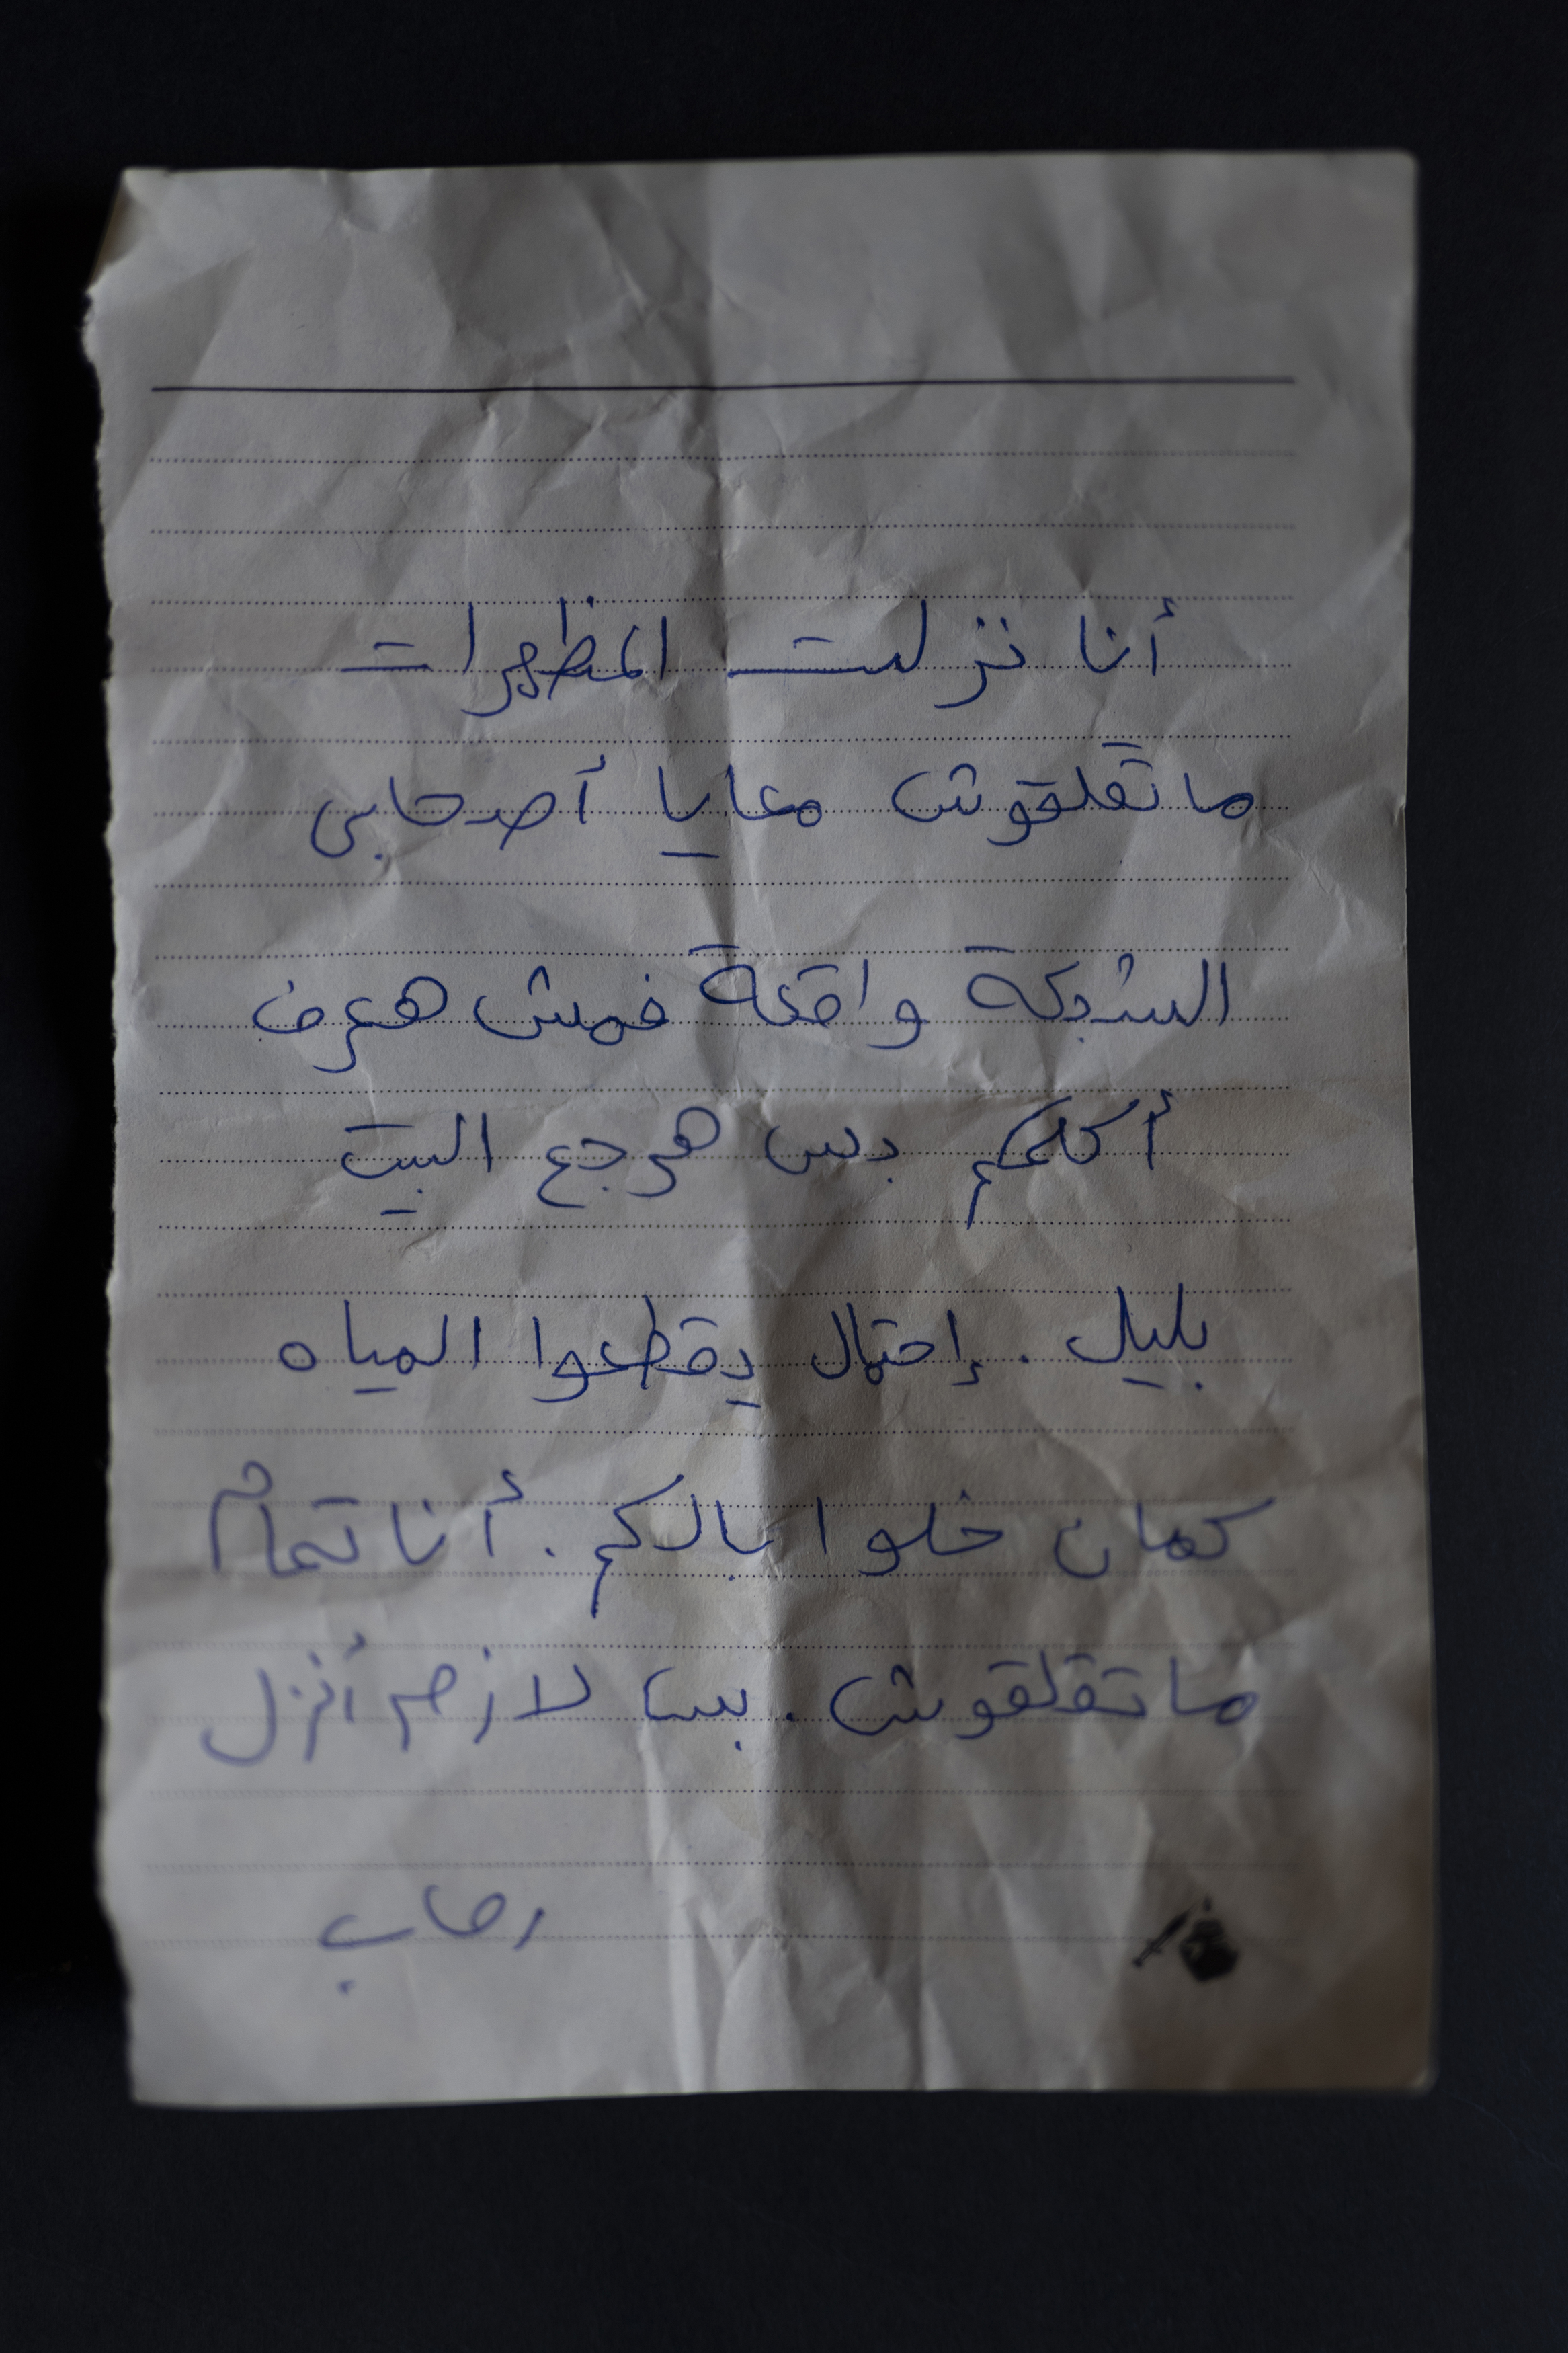 أنا نزلت المظهرات
ماتقلقوش معايا أصحابى
الشبكة واقعة فمش هعرف
أكلمكم بس هرجع البيت
بليل . إحتمال يقطعوا المياه
كمان خلوا بالكم . أنا تمام
ماتقلقوش . بس لازم أنزل
رحاب